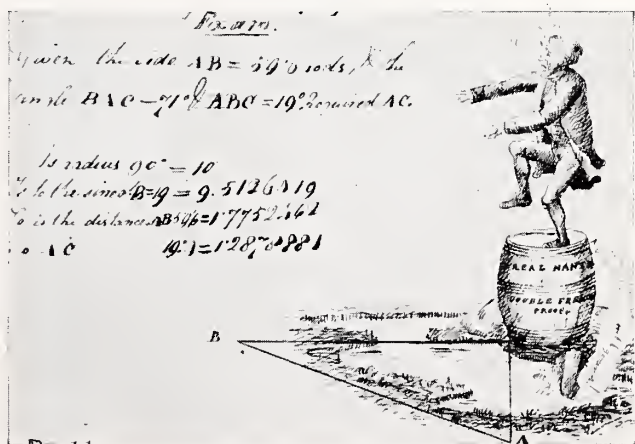 Exam.
Given the side AB = 59'6 rods, & the
angle BAC - 71° & ABC = 19°. Required AC.
As radius 90° = 10
Is to the sine of B=19 = 9.5126419
So is the distance AB 59'6 = 1'7752462
to AC 19'4 = 1'2878881
REAL NANTZ
DOUBLE FRENCH
PROOF
B
A